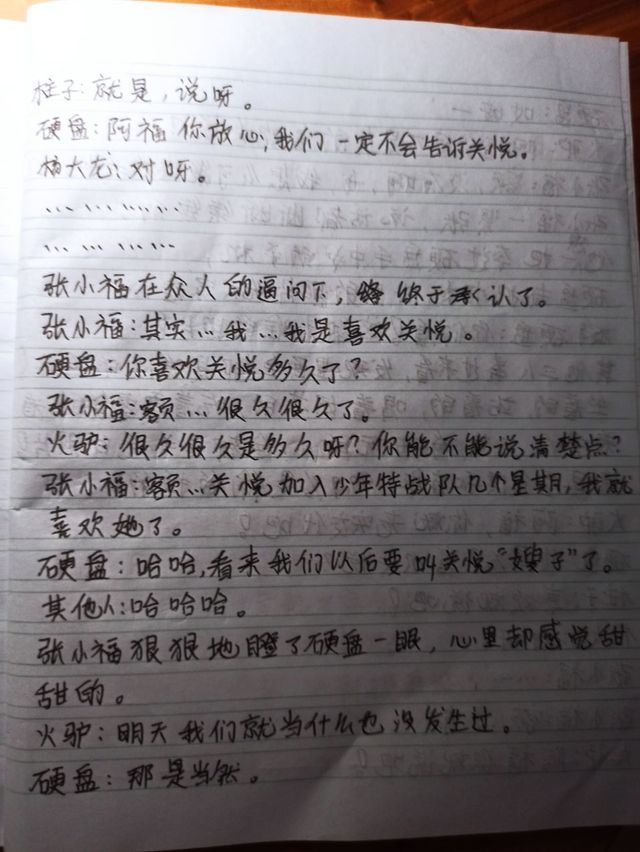 柱子:就是,说呀。
硬盘:阿福 你放心,我们一定不会告诉关悦。
杨大龙:对呀。
… … … …
… … … …
张小福在众人的逼问下, 终于承认了。
张小福:其实…我…我是喜欢关悦。
硬盘:你喜欢关悦多久了?
张小福:额…很久很久了。
火驴:很久很久是多久呀?你能不能说清楚点?
张小福:额…关悦加入少年特战队几个星期,我就
喜欢她了。
硬盘:哈哈,看来我们以后要叫关悦“嫂子”了。
其他人:哈哈哈。
张小福狠狠地瞪了硬盘一眼,心里却感觉甜
甜的。
火驴:明天我们就当什么也没发生过。
硬盘:那是当然。